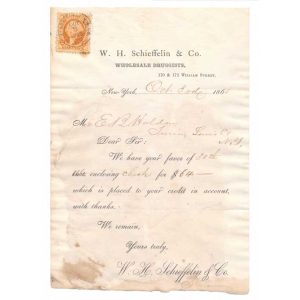 W. H. Schieffelin & Co.
WHOLESALE DRUGGISTS,
170 & 172 WILLIAM STREET.
New-York, Oct 186
M
Dear Sir:
We have your favor of 30th
enclosing check for $64—
which is placed to your credit in account,
with thanks.
We remain,
Yours truly,
W. H. Schieffelin & Co.